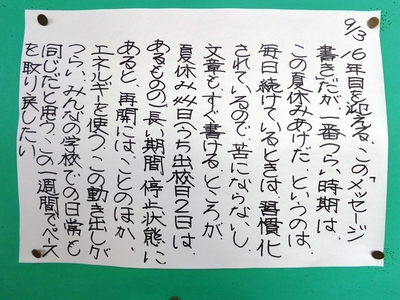 9/3 16年目を迎える、この「メッセージ
書き」だが、一番つらい時期は、
この夏休みあけだ。というのは、
毎日続けているときは、習慣化
されているので、苦にならないし、
文章もすぐ書ける。ところが、
夏休み44日(うち出校日2日は、
あるものの)長い期間、停止状態に
あると、再開には、ことのほか、
エネルギーを使う。この動き出しが
つらい。みんなの学校での日常も
同じだと思う。この一週間でペース
を取り戻したい。